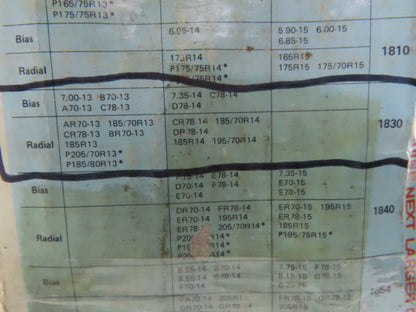 P165/75R13*
P175/75R13*
Bias
6.95-14
5.90-15 6.00-15
6.85-15
1810
Radial
175R14
P175/75R14*
165R15
175R15 175/70R15
Bias
7.00-13 B70-13
A70-13 C78-13
7.35-14 C78-14
D78-14
1830
Radial
AR70-13 185/70R13
CR78-13 BR70-13
185R13
P205/70R13*
P185/80R13*
CR78-14 185/70R14
DR78-14
185R14 195/70R14
Bias
7.75-14 E78-14
D70-14 F78-14
E70-14
7.35-15
E70-15
E78-15
1840
Radial
DR70-14 FR78-14
ER70-14 195R14
ER78-14 205/70R14*
ER70-15 195R15
ER78-15
185R15
P195/75R15*
8.15-14 G70-14
8.55-14 G78-14
F70-14
7.75-15 F78-15
8.15-15 G78-15
8.25-15
FR70-14 205R14
FR78-15 205R15